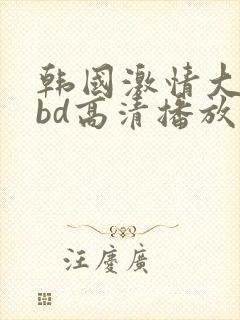 韩國激情大
bd高清播放
汪慶廣